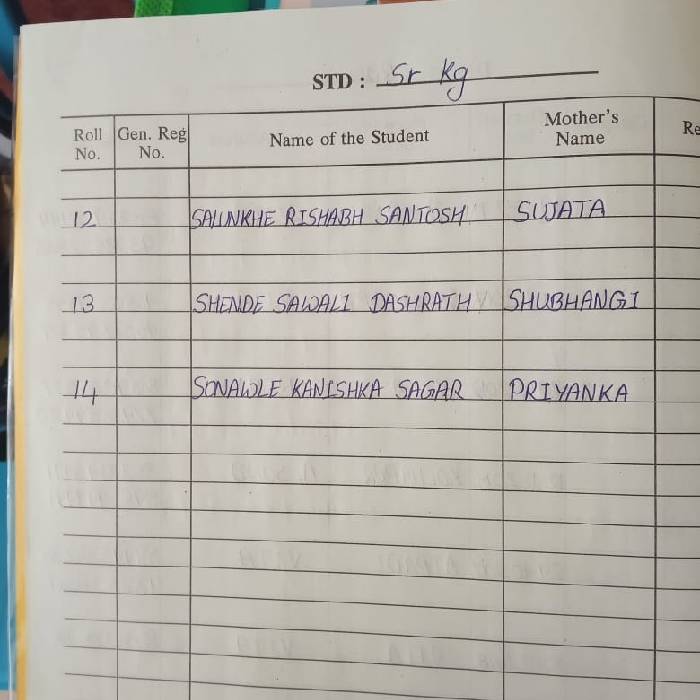 STD : Sr Kg
Roll No. Gen. Reg No. Name of the Student Mother's Name Re
12 SALUNKHE RISHABH SANTOSH SUJATA
13 SHENDE SAWALI DASHRATH SHUBHANGI
14 SONAWLE KANISHKA SAGAR PRIYANKA